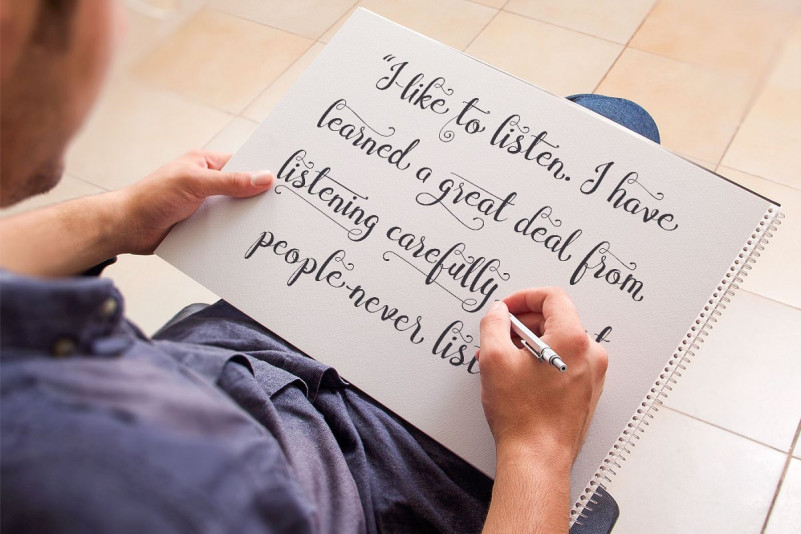 “I like to listen. I have
learned a great deal from
listening carefully
people never list